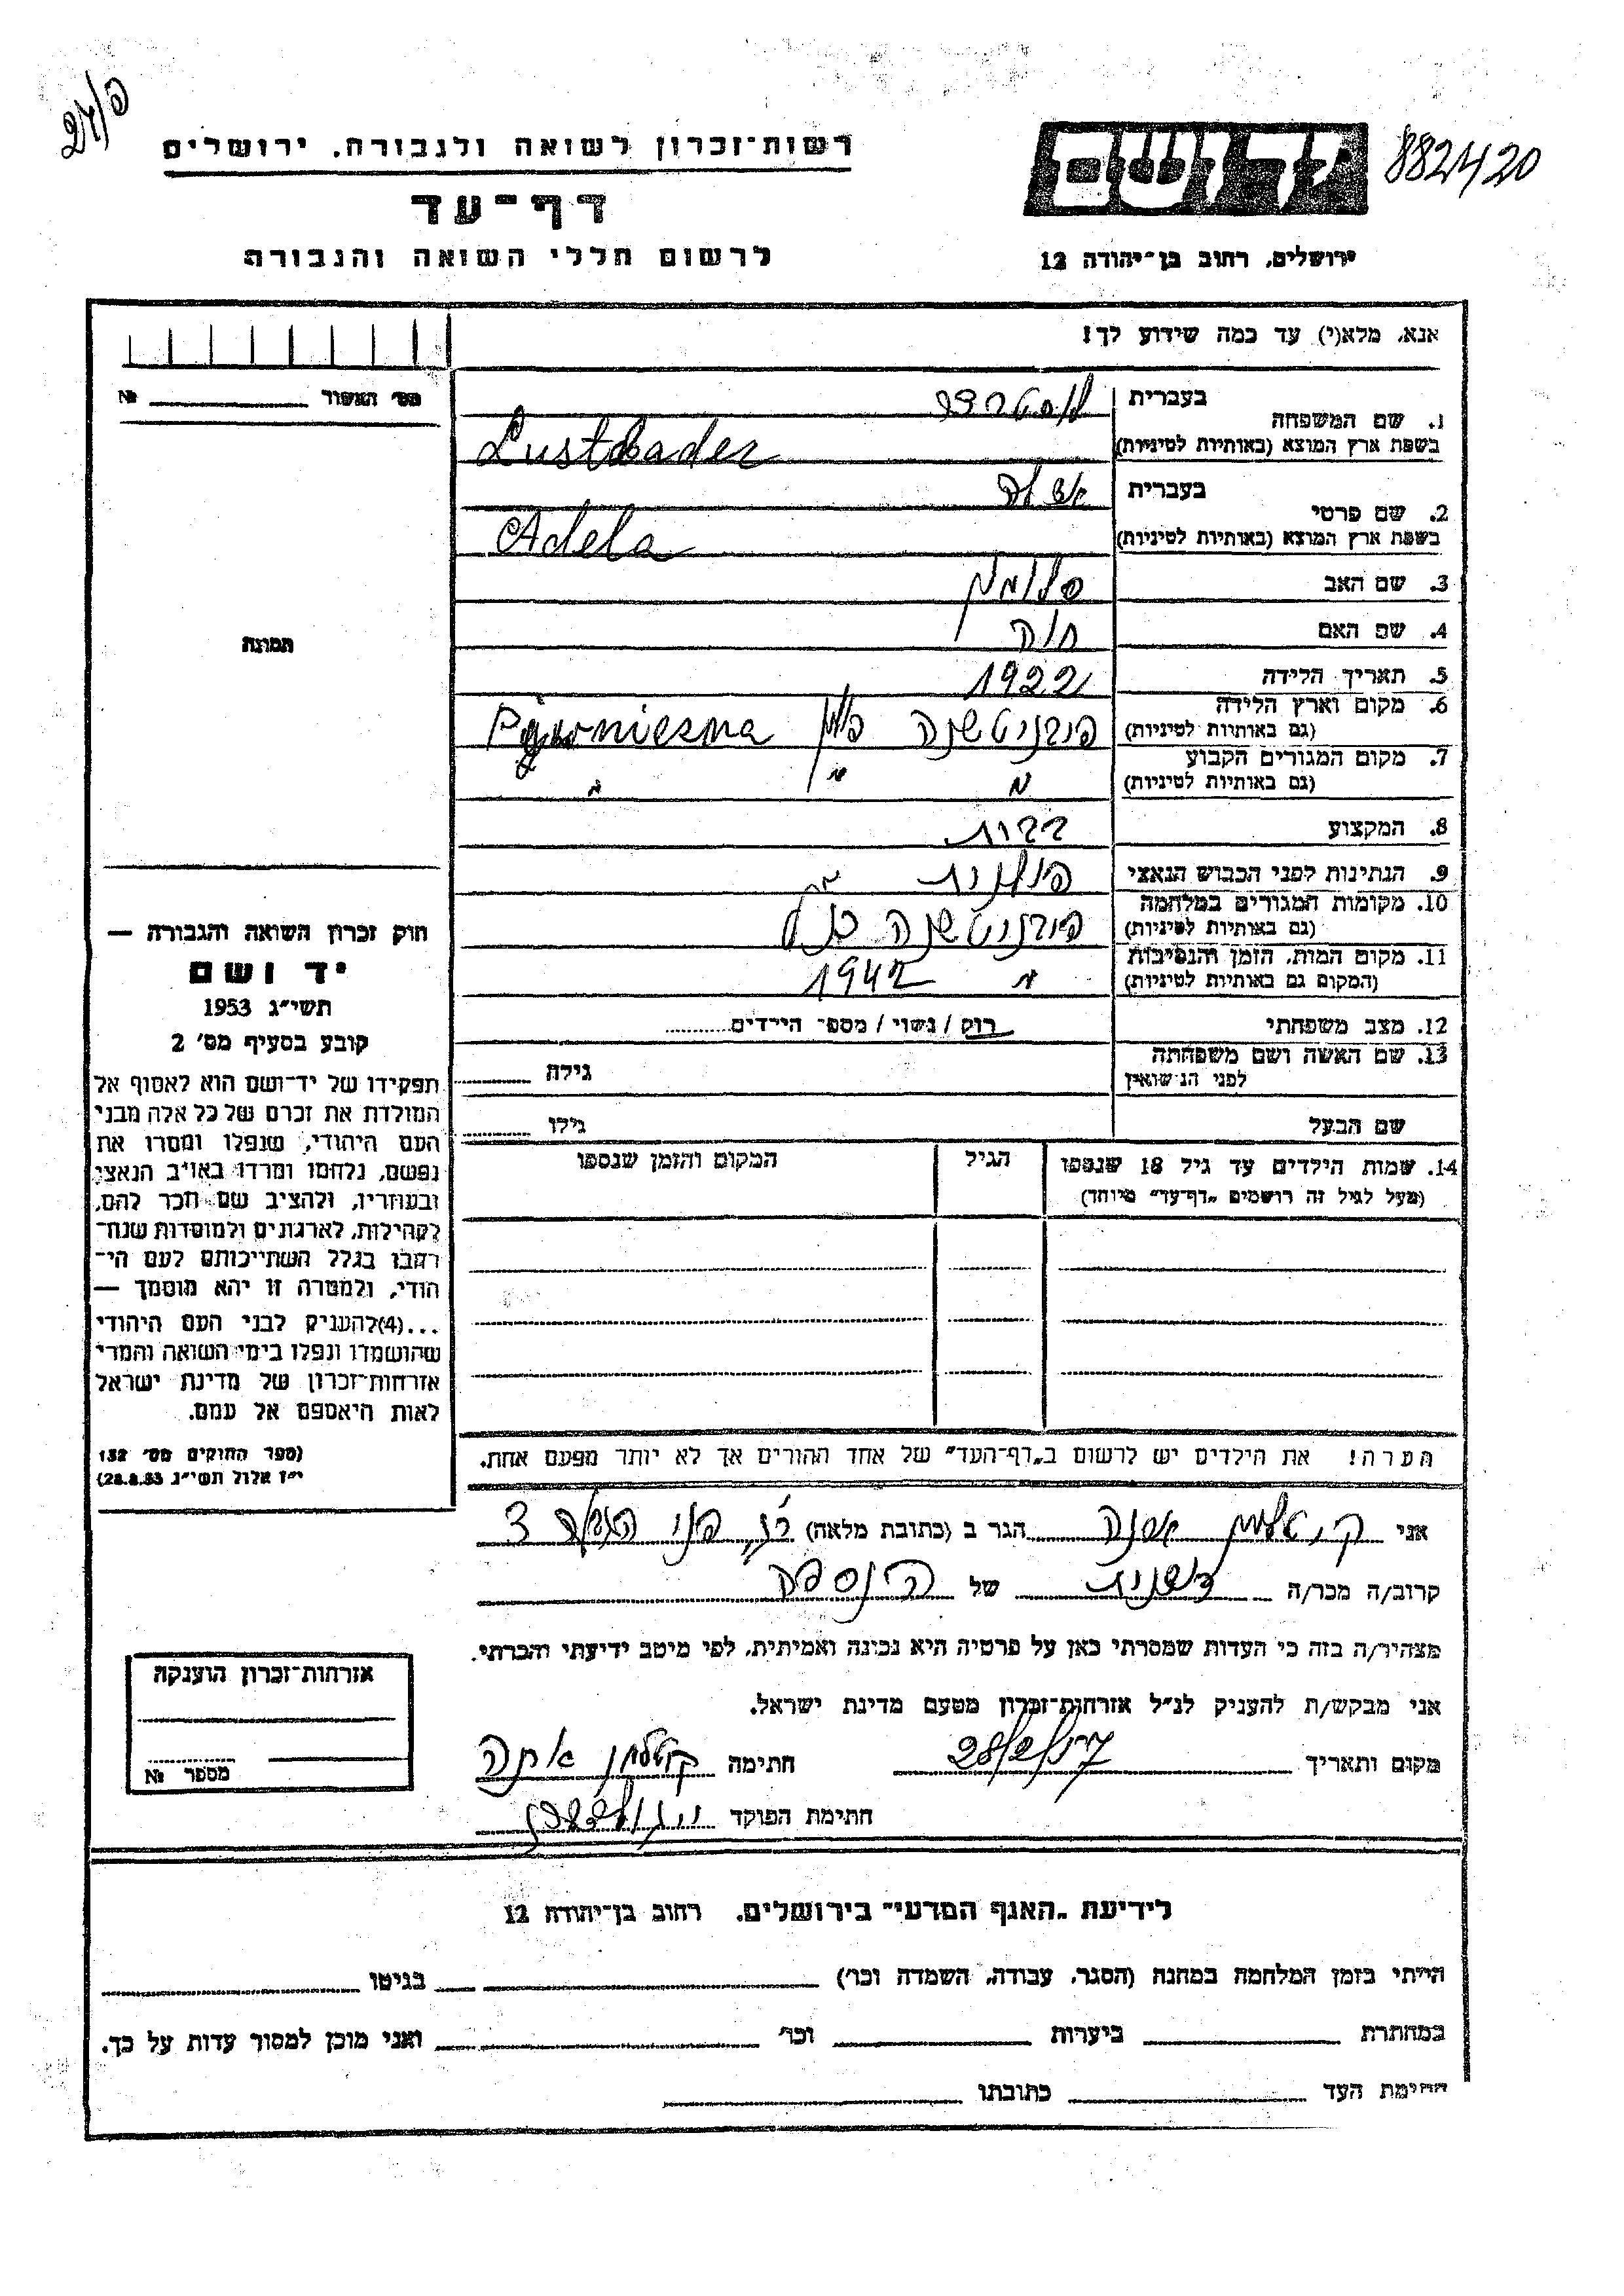 פ/24
882420
רשות־זכרון לשואה ולגבורה, ירושלים
דף־עד
לרשום חללי השואה והגבורה
יד ושם
ירושלים, רחוב בן־יהודה 12
אנא, מלא(י) עד כמה שידוע לך!
מס' האשור №
1. שם המשפחה בעברית לוסטבדר
בשפת ארץ המוצא (באותיות לטיניות) Lustbader
2. שם פרטי בעברית אדלה
בשפת ארץ המוצא (באותיות לטיניות) Adela
3. שם האב סלומון
4. שם האם חוה
5. תאריך הלידה 1922
6. מקום וארץ הלידה
(גם באותיות לטיניות) פולין
7. מקום המגורים הקבוע
(גם באותיות לטיניות) " " "
8. המקצוע
9. הנתינות לפני הכבוש הנאצי פולנית
10. מקומות המגורים במלחמה
(גם באותיות לטיניות)
11. מקום המות, הזמן והנסיבות
(המקום גם באותיות לטיניות) " 1942
12. מצב משפחתי רוק / נשוי / מספר הילדים
13. שם האשה ושם משפחתה
לפני הנישואין גילה
שם הבעל גילו
14. שמות הילדים עד גיל 18 שנספו הגיל המקום והזמן שנספו
(מעל לגיל זה רושמים "דף־עד" מיוחד)
הערה! את הילדים יש לרשום ב"דף־העד" של אחד ההורים אך לא יותר מפעם אחת.
תמונה
חוק זכרון השואה והגבורה —
יד ושם
תשי"ג 1953
קובע בסעיף מס' 2
תפקידו של יד־ושם הוא לאסוף אל
המולדת את זכרם של כל אלה מבני
העם היהודי, שנפלו ומסרו את
נפשם, נלחמו ומרדו באויב הנאצי
ובעוזריו, ולהציב שם וזכר להם,
לקהילות, לארגונים ולמוסדות שנח־
רבו בגלל השתייכותם לעם הי־
הודי, ולמטרה זו יהא מוסמך —
...(4)להעניק לבני העם היהודי
שהושמדו ונפלו בימי השואה והמרי
אזרחות־זכרון של מדינת ישראל
לאות היאספם אל עמם.
(ספר החוקים מס' 132
י"ז אלול תשי"ג 28.8.53)
אני אנה הגר ב (כתובת מלאה)
קרוב/ה מכר/ה שכנית של הנספה
מצהיר/ה בזה כי העדות שמסרתי כאן על פרטיה היא נכונה ואמיתית, לפי מיטב ידיעתי והכרתי.
אני מבקש/ת להעניק לנ"ל אזרחות־זכרון מטעם מדינת ישראל.
מקום ותאריך 28/2/57 חתימה אנה
חתימת הפוקד
אזרחות־זכרון הוענקה
מספר №
לידיעת "האגף המדעי" בירושלים, רחוב בן־יהודה 12
הייתי בזמן המלחמה במחנה (הסגר, עבודה, השמדה וכו') בגיטו
במחתרת ביערות וכו' ואני מוכן למסור עדות על כך.
חתימת העד כתובתו